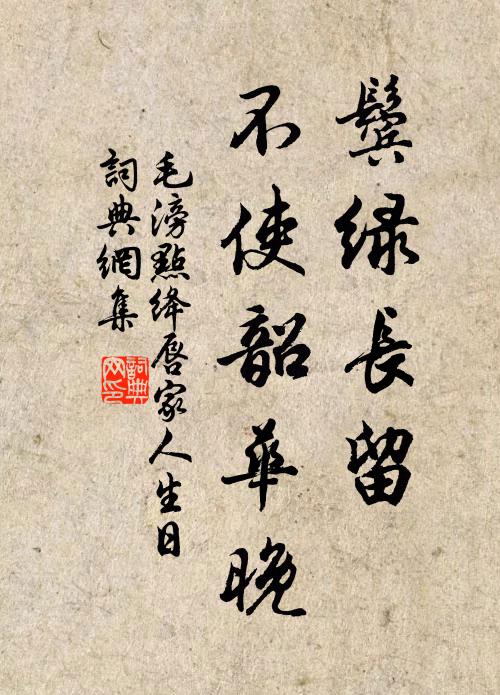 鬓绿長留
不使韶華晚
毛滂點绛唇家人生日
詞典網集
詞典
网印